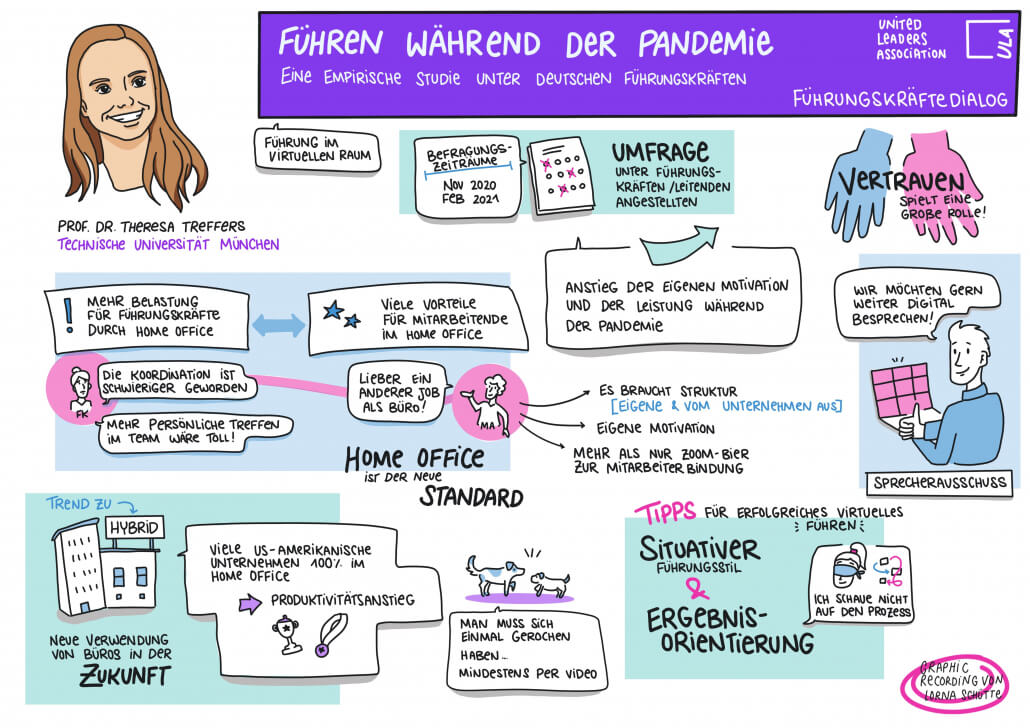 FÜHREN WÄHREND DER PANDEMIE
EINE EMPIRISCHE STUDIE UNTER DEUTSCHEN FÜHRUNGSKRÄFTEN
UNITED
LEADERS
ASSOCIATION
ULA
FÜHRUNGSKRÄFTEDIALOG
PROF. DR. THERESA TREFFERS
TECHNISCHE UNIVERSITÄT MÜNCHEN
FÜHRUNG IM
VIRTUELLEN RAUM
BEFRAGUNGS-
ZEITRÄUME
NOV 2020
FEB 2021
UMFRAGE
UNTER FÜHRUNGS-
KRÄFTEN/LEITENDEN
ANGESTELLTEN
VERTRAUEN
SPIELT EINE
GROßE ROLLE!
ANSTIEG DER EIGENEN MOTIVATION
UND DER LEISTUNG WÄHREND
DER PANDEMIE
WIR MÖCHTEN GERN
WEITER DIGITAL
BESPRECHEN!
SPRECHERAUSSCHUSS
! MEHR BELASTUNG
FÜR FÜHRUNGSKRÄFTE
DURCH HOME OFFICE
VIELE VORTEILE
FÜR MITARBEITENDE
IM HOME OFFICE
FK
DIE KOORDINATION IST
SCHWIERIGER GEWORDEN
MEHR PERSÖNLICHE TREFFEN
IM TEAM WÄRE TOLL!
LIEBER EIN
ANDERER JOB
ALS BÜRO!
MA
ES BRAUCHT STRUKTUR
[EIGENE & VOM UNTERNEHMEN AUS]
EIGENE MOTIVATION
MEHR ALS NUR ZOOM-BIER
ZUR MITARBEITERBINDUNG
HOME OFFICE
IST DER NEUE
STANDARD
TREND ZU
HYBRID
NEUE VERWENDUNG
VON BÜROS IN DER
ZUKUNFT
VIELE US-AMERIKANISCHE
UNTERNEHMEN 100% IM
HOME OFFICE
PRODUKTIVITÄTSANSTIEG
MAN MUSS SICH
EINMAL GEROCHEN
HABEN...
MINDESTENS PER VIDEO
TIPPS FÜR ERFOLGREICHES VIRTUELLES
FÜHREN
SITUATIVER
FÜHRUNGSSTIL
&
ERGEBNIS-
ORIENTIERUNG
ICH SCHAUE NICHT
AUF DEN PROZESS
GRAPHIC
RECORDING VON
LORNA SCHÜTTE